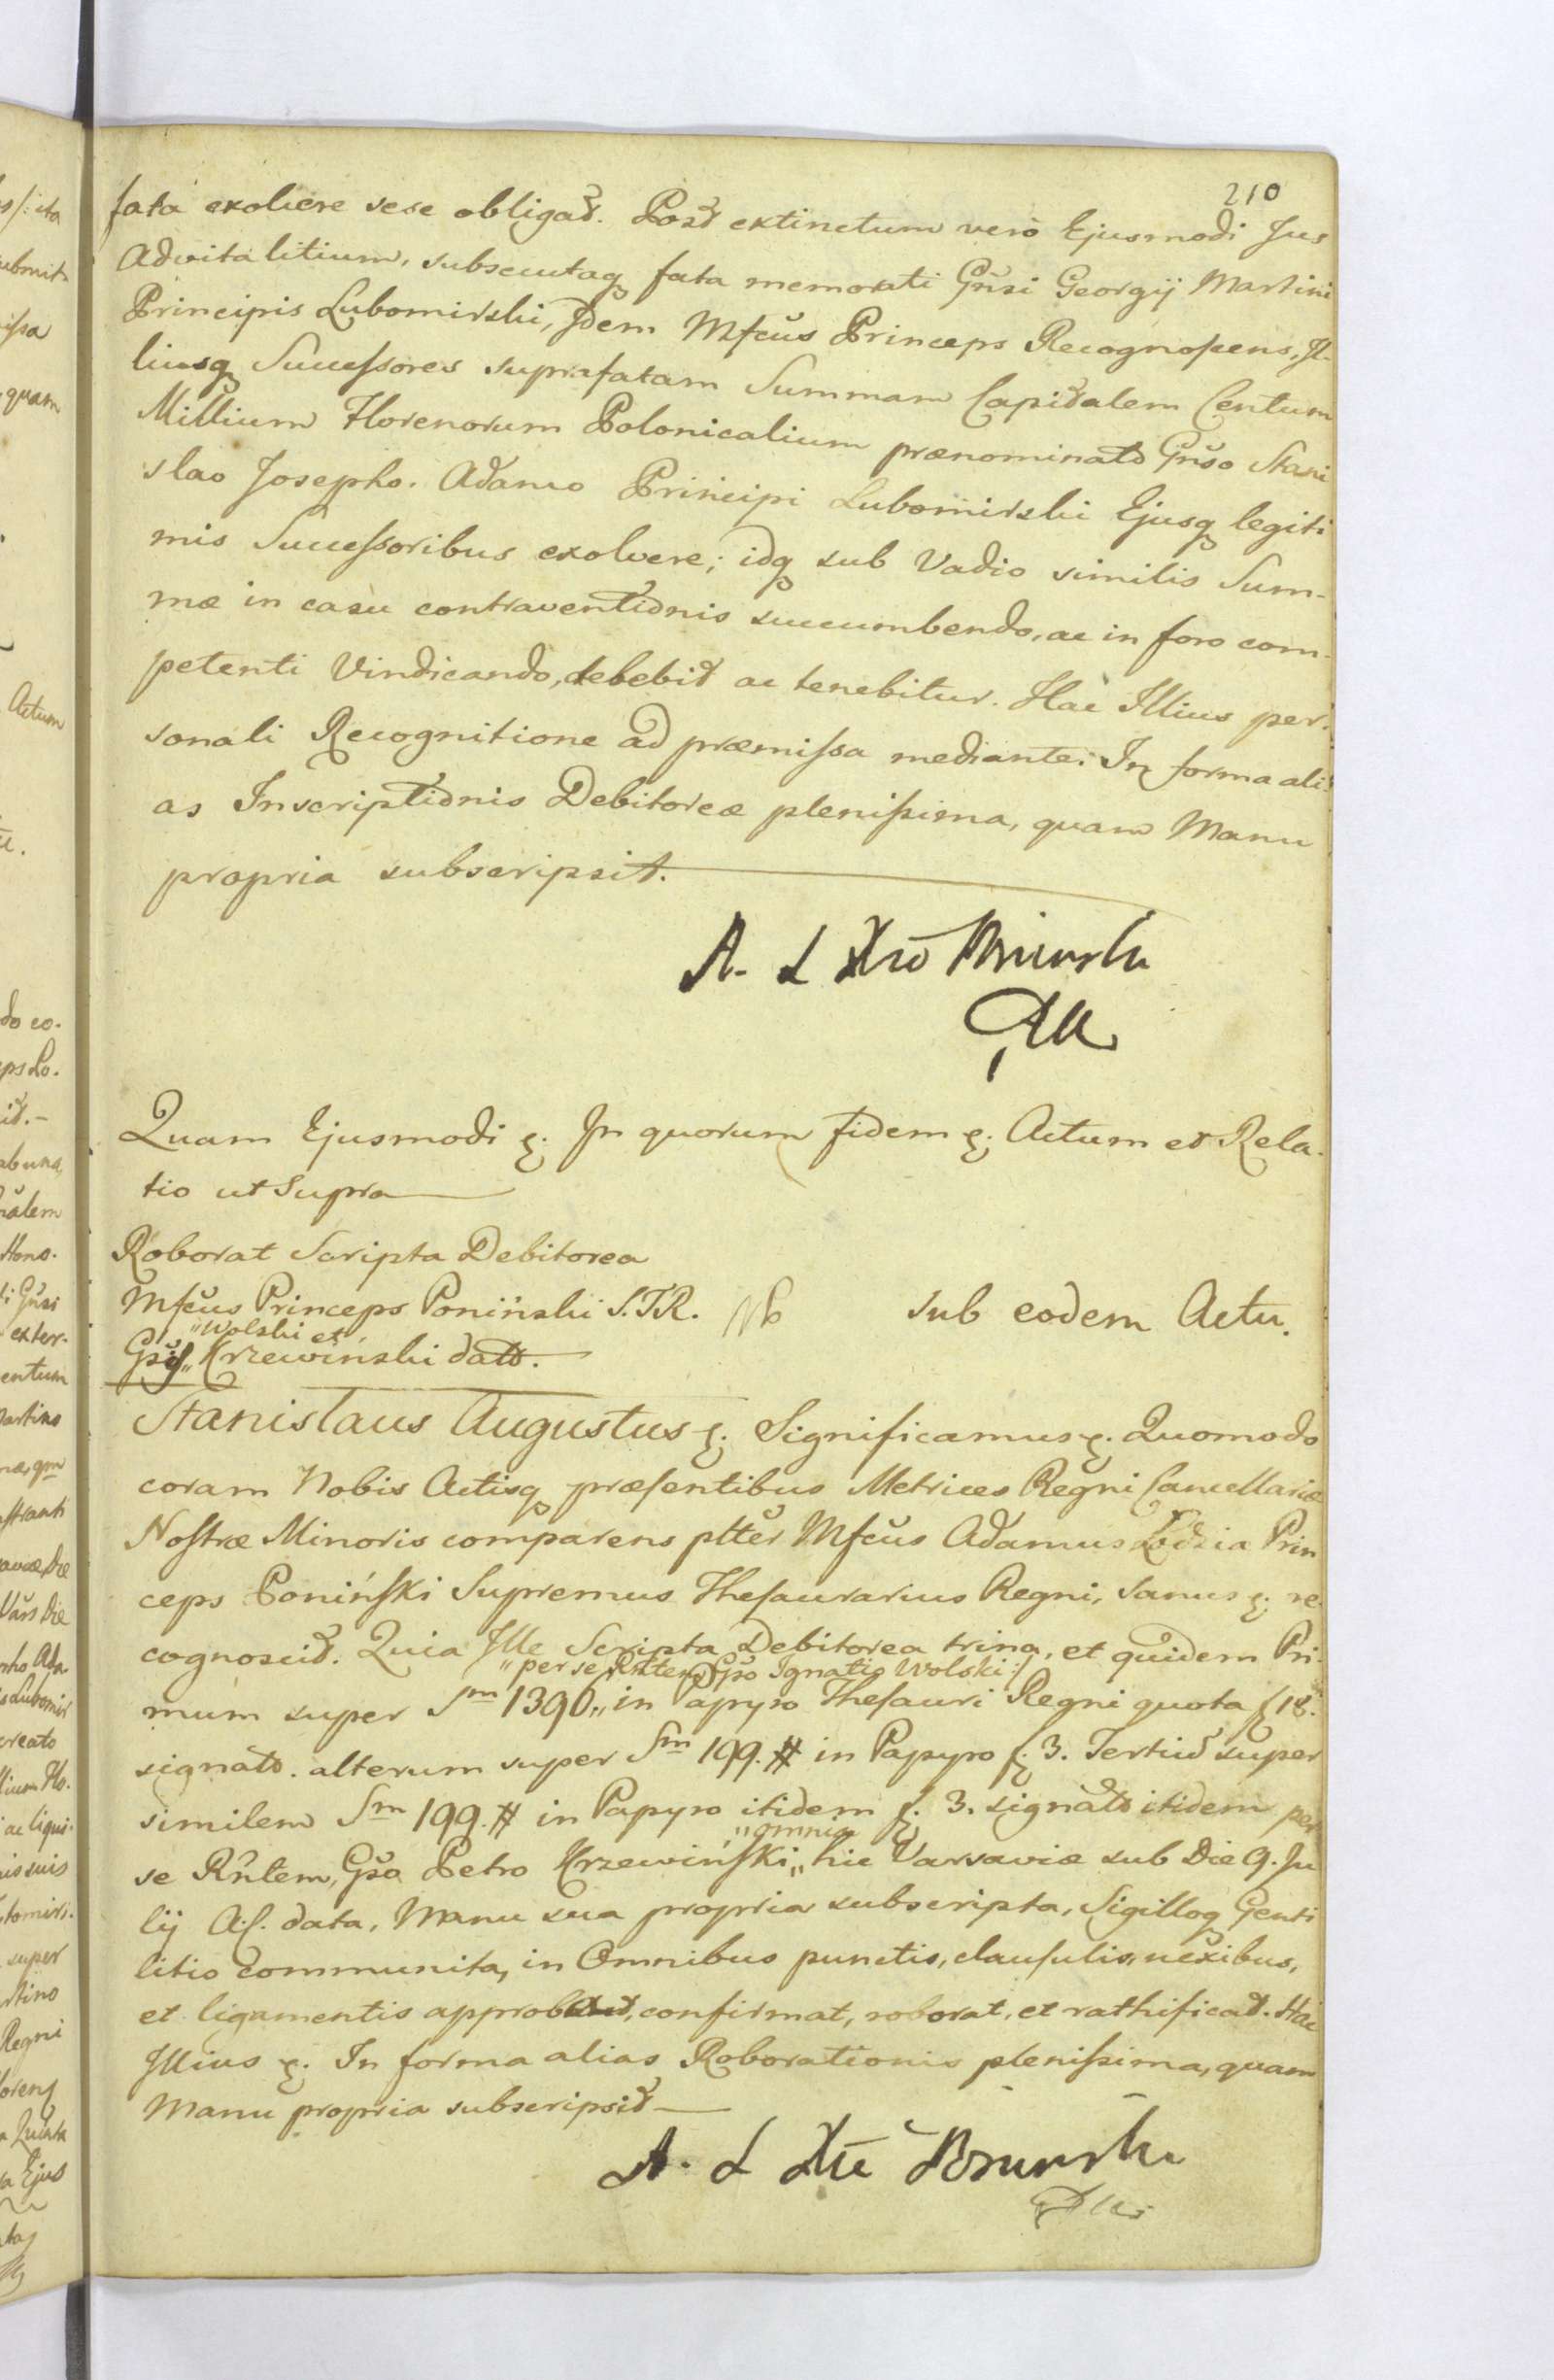 210
fata exolvere sese obligat. Post extinctum verò Ejusmodi Jus
Advitalitium, subsecutaq fata memorati Gn̄si Georgij Martini
Principis Lubomirski, Idem Mfcus Princeps Recognoscens, Il-
liusq Successores suprafatam Summam Capitalem Centum
Millium Florenorum Polonicalium prænominato Gn̄so Stani
slao Josepho. Adamo Principi Lubomirski Ejusq legiti
mis Successoribus exolvere; idq sub Vadio similis Sum-
mæ in casu contraventionis succumbendo, ac in foro com-
petenti Vindicando, debebit ac tenebitur. Hac Illius per-
sonali Recognitione ad præmissa mediante. In forma ali-
as Inscriptionis Debitoreæ plenissima, quam Manu
propria subscripsit.
A. L
Quam Ejusmodi &. In quorum fidem &. Actum et Rela-
tio ut supra
Roborat Scripta Debitorea
Mfcus Princeps Poniński S.T.R.
sub eodem Actu.
"Wolski et
Gsis" Krzewiński dato.
Stanislaus Augustus &. Significamus &. Quomodo
coram Nobis Actisq præsentibus Metrices Regni Cancellariæ
Nostræ Minoris comparens pltēr Mfcus Adamus Lodzia Prin
ceps Poniński Supremus Thesaurarius Regni, sanus &. re-
cognoscit. Quia Ille Scripta Debitorea trina, et quidem Pri-
"per se Rn̄tem Gso Ignatio Wolski
mum super Sm̄ 1390." in Papyro Thesauri Regni quota f 18.
signato. alterum super Sm̄ 199. # in Papyro f. 3. Tertiū super
similem Sm̄ 199. # in Papyro itidem f. 3. signato itidem per
"omnia
se Rn̄tem, Gso Petro Krzewiński" hic Varsaviæ sub Die 9. Ju
lij A.C. data, Manu sua propria subscripta, Sigilloq Genti
litio communita, in Omnibus punctis, clausulis, nexibus,
et ligamentis approbat, confirmat, roborat, et rathificat. Hac
Illius &. In forma alias Roborationis plenissima, quam
Manu propria subscripsit
A. L